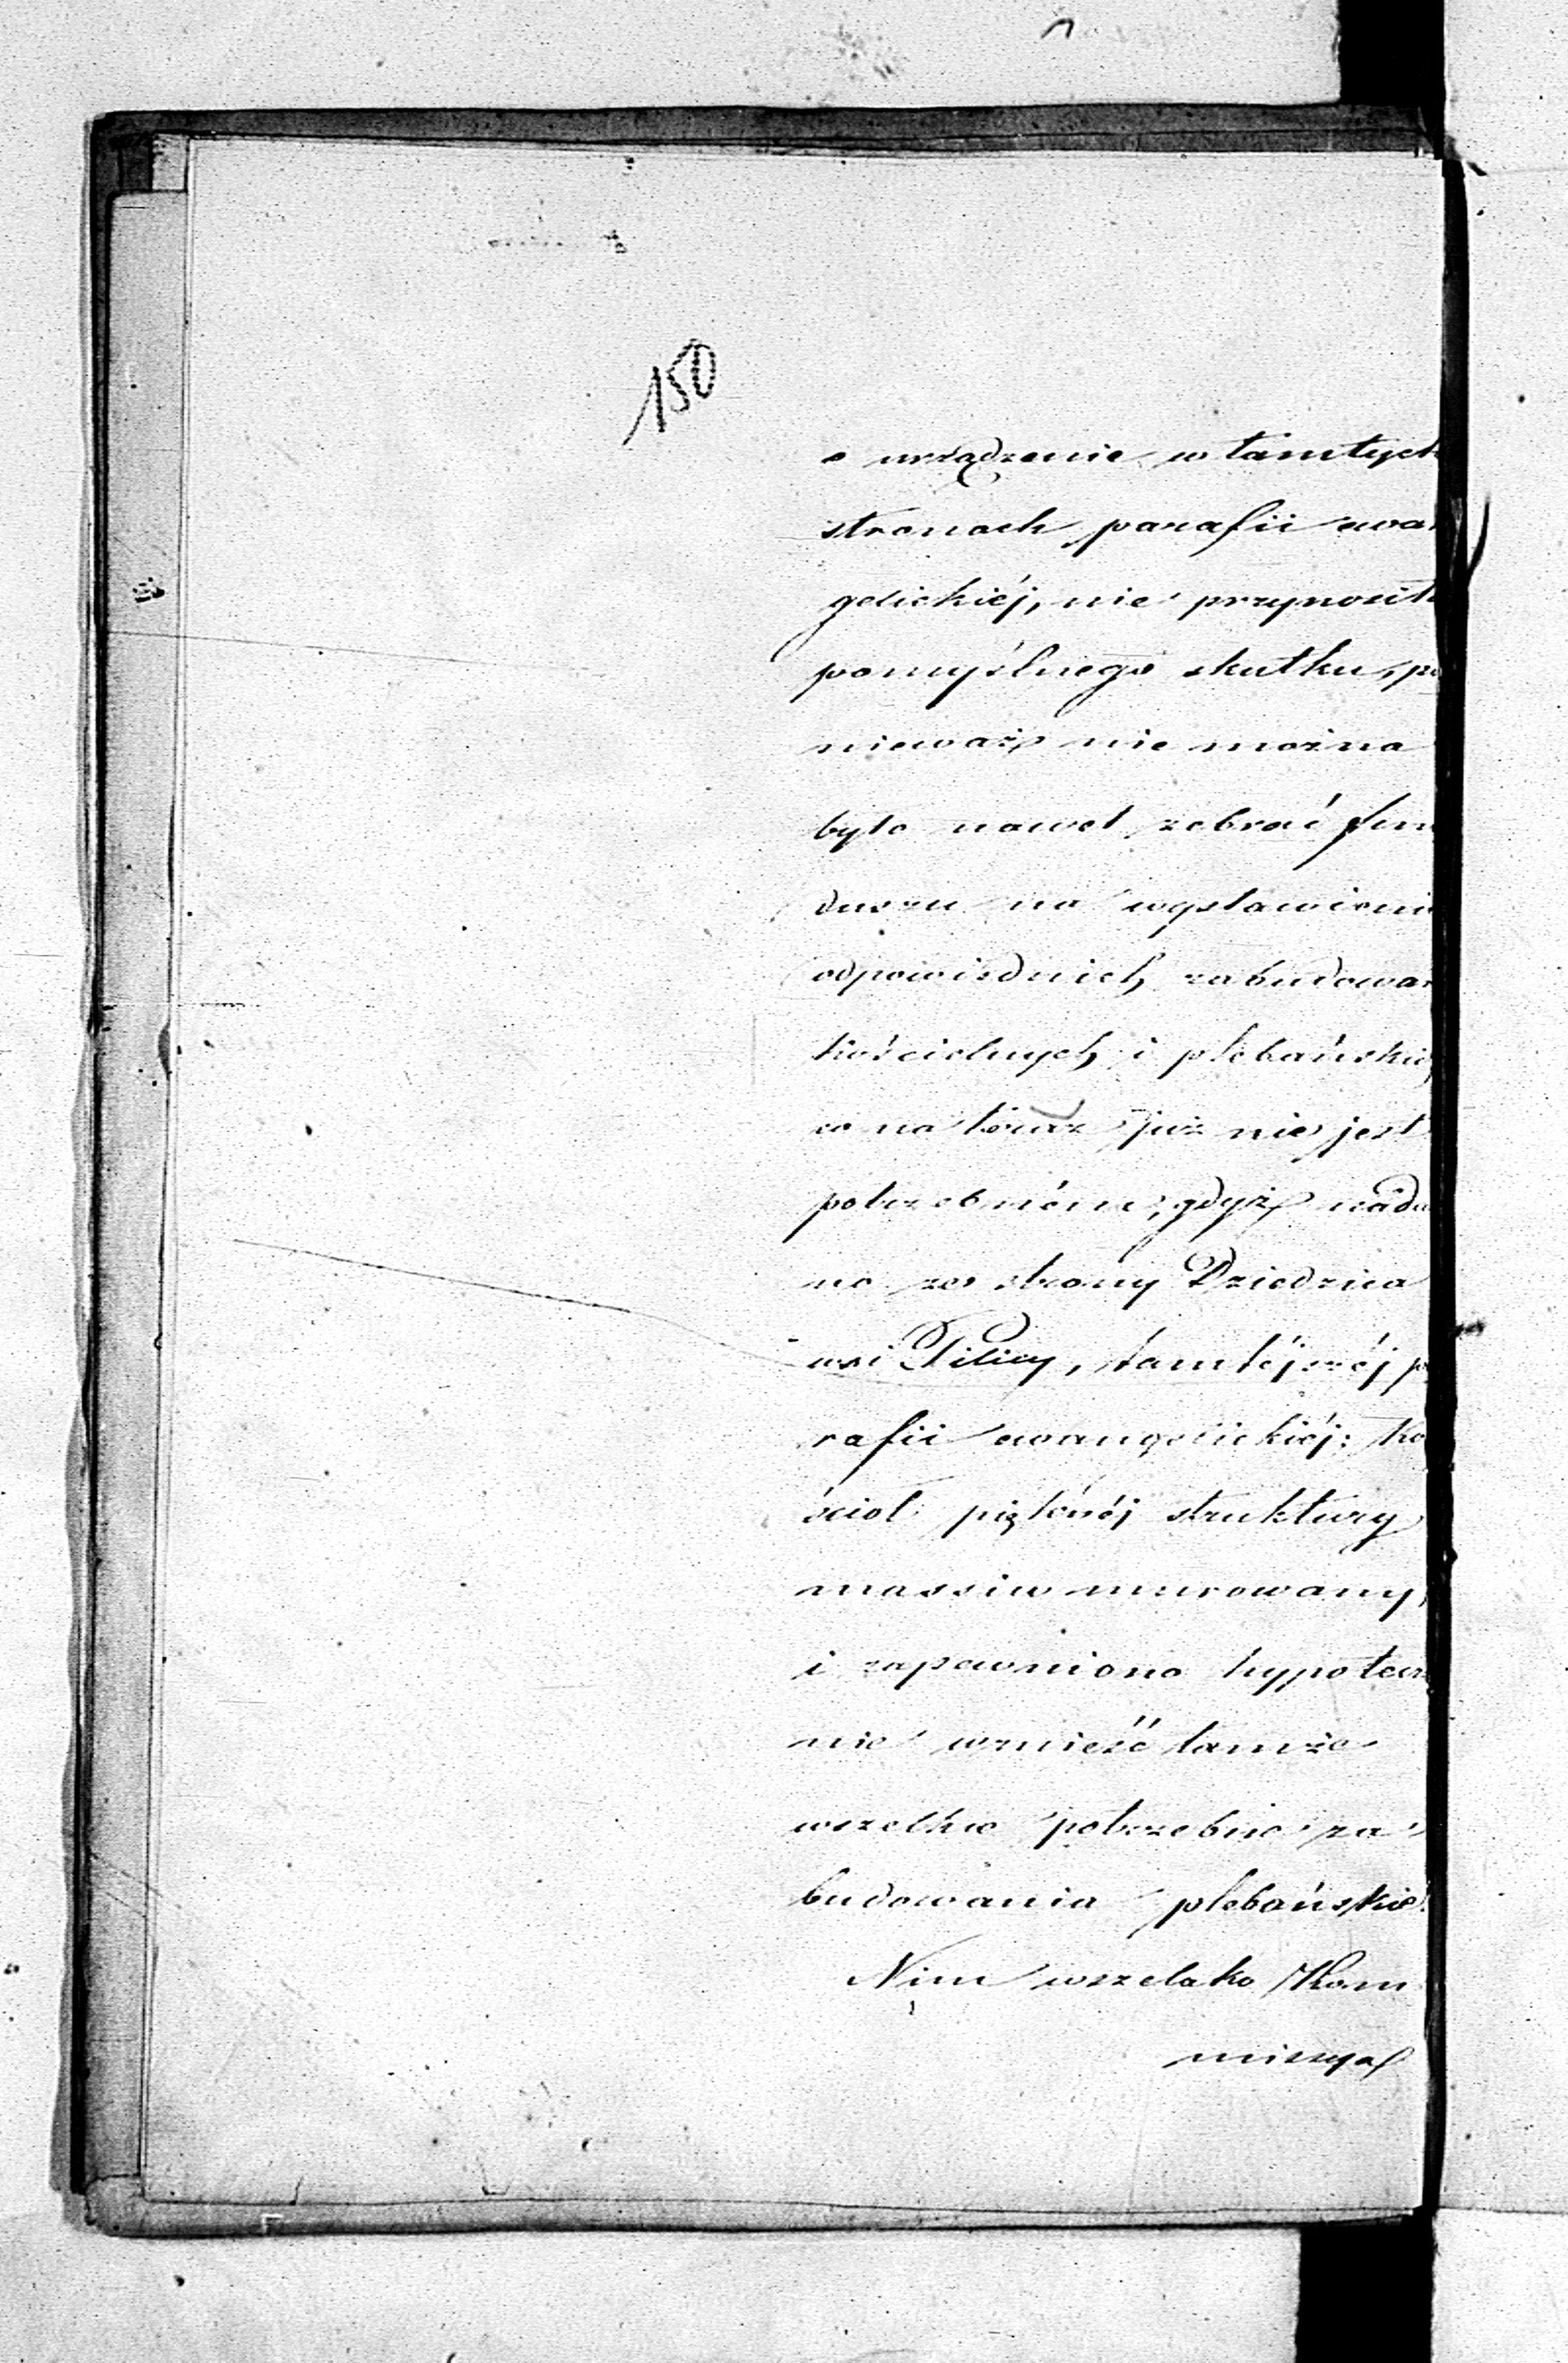 150
o urządzenie w tamtych
stronach parafii ewan
gelickiéj, nie przynosiło
pomyślnego skutku, po
nieważ nie można
było nawet zebrać fun
duszu na wystawienie
odpowiednich zabudowań
kościelnych i plebańskich
co na teraz już nie jest
potrzebném, gdyż nada
no ze strony Dziedzica
wsi Pilicy, tamtéjszéj pa
rafii ewangelickiéj: Ko
ściół pięknéj struktury
massiw murowany,
i zapewniono hypotecz
nie wznieść tamże
wszelkie potrzebne za
budowania plebańskie.
Nim wszelako Kom
missya